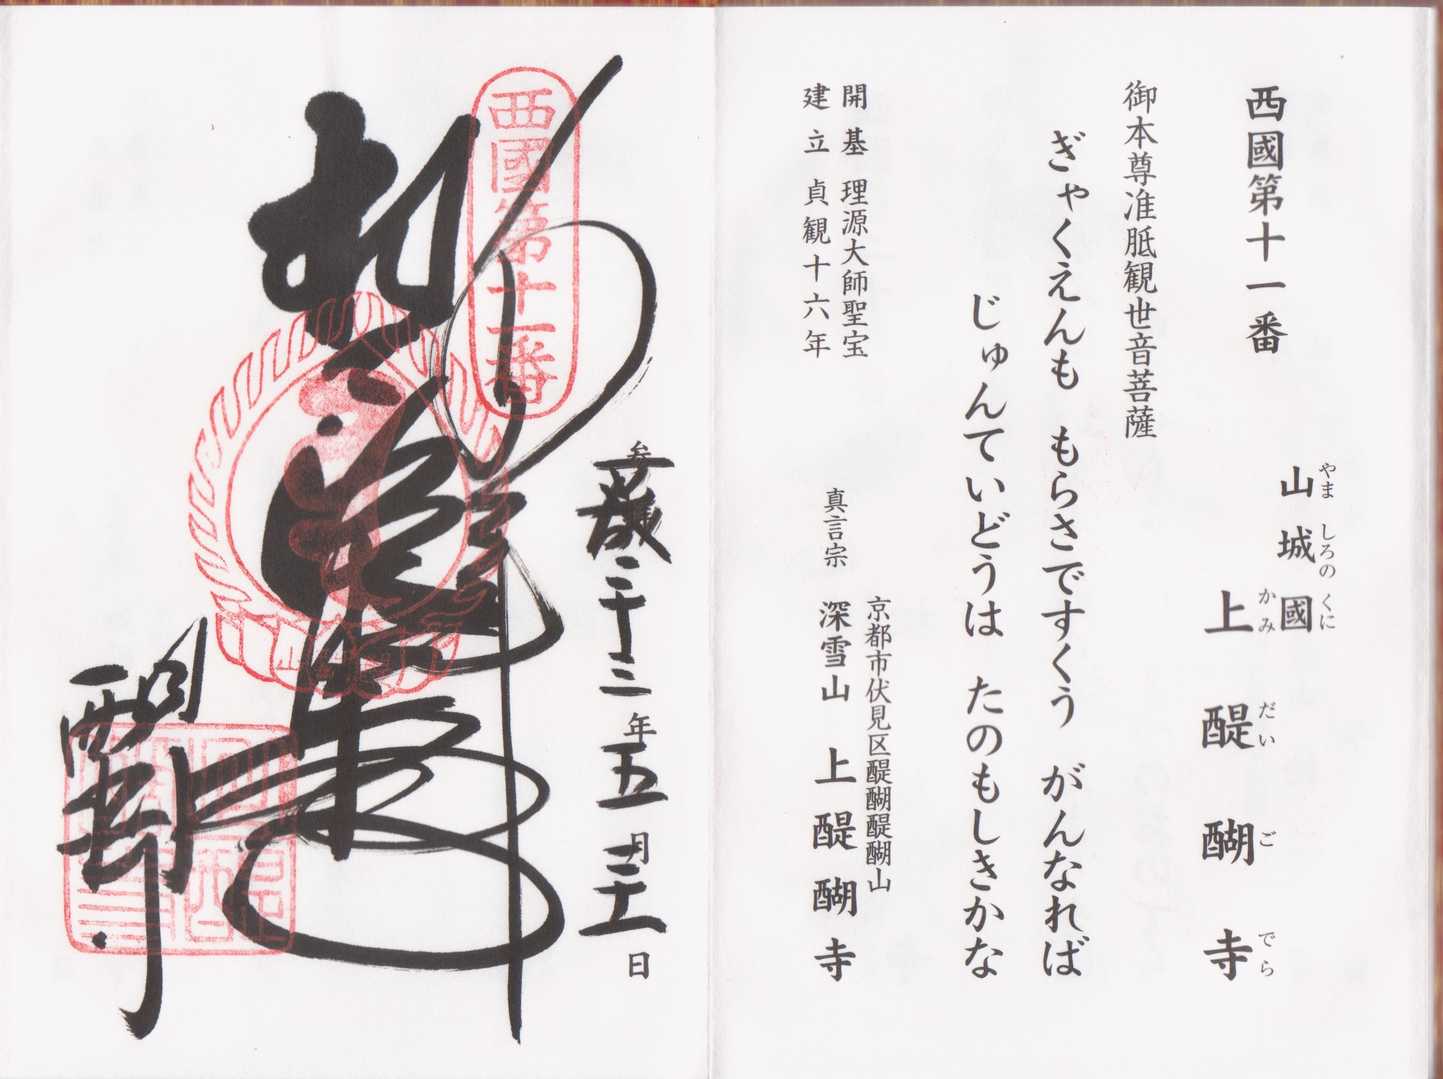 西國第十一番
やま しろの くに
山城國
かみ だい ご でら
上醍醐寺
御本尊准胝観世音菩薩
ぎゃくえんも もらさですくう がんなれば
じゅんていどうは たのもしきかな
開基 理源大師聖宝
建立 貞観十六年
京都市伏見区醍醐醍醐山
真言宗 深雪山 上醍醐寺
参拝
二十三年五月二十一日
西國第十一番
醍醐